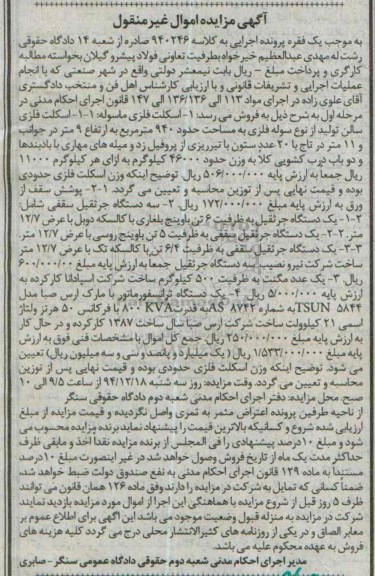 آگهی مزایده اموال غیر منقول
به موجب یک فقره پرونده اجرایی به کلاسه ۹۴۰۲۴۶ صادره از شعبه ۱۴ دادگاه حقوقی
رشت له مهدی عبدالعظیم خیرخواه بطرفیت تعاونی فولاد پیشرو گیلان بخواسته مطالبه
کارگری و پرداخت مبلغ - ریال بابت نیمعشر دولتی واقع در شهر صنعتی که با انجام
عملیات اجرایی و تشریفات قانونی و با ارزیابی کارشناس اهل فن و منتخب دادگستری
آقای علوی زاده در اجرای مواد ۱۱۳ الی ۱۳۶/۱۳۶ الی ۱۴۷ قانون اجرای احکام مدنی در
مرحله اول به شرح ذیل به فروش می رسد: ۱- اسکلت فلزی ماسوله: ۱-۱- اسکلت فلزی
سالن تولید از نوع سوله فلزی به مساحت حدود ۹۴۰ مترمربع به ارتفاع ۹ متر در جوانب
و ۱۱ متر در تاج با ۲۰ عدد ستون با تیرریزی از پروفل زد و میله های مهاری با بادبندها
و دو باب درب کشویی کلا به وزن حدود ۴۶۰۰۰ کیلوگرم به ازای هر کیلوگرم ۱۱۰۰۰
ریال جمعا به ارزش پایه ۵۰۶/۰۰۰/۰۰۰ ریال. توضیح اینکه وزن اسکلت فلزی حدودی
بوده و قیمت نهایی پس از توزین محاسبه و تعیین می گردد. ۲-۱- پوشش سقف از
ورق به ارزش پایه مبلغ ۱۷۲/۰۰۰/۰۰۰ ریال. ۲- سه دستگاه جرثقیل سقفی شامل:
۱-۲- یک دستگاه جرثقیل به ظرفیت ۶ تن باوینچ بلغاری با کالسکه دوپل با عرض ۱۲/۷
متر. ۲-۲- یک دستگاه جرثقیل سقفی به ظرفیت ۵ تن باوینچ روسی با عرض ۱۲/۷ متر
۳-۳- یک دستگاه جرثقیل سقفی به ظرفیت ۶/۴ تن با کالسکه تک با عرض ۱۲/۷ متر
ساخت شرکت نیرو نصیب سه دستگاه جرثقیل جمعا به ارزش پایه مبلغ ۶۰۰/۰۰۰/۰۰۰
ریال. ۳- یک عدد مگنت به ظرفیت ۵۰۰ کیلوگرم ساخت شرکت اسپادانا کارکرده به
ارزش پایه ۵/۰۰۰/۰۰۰ ریال. ۴- یک دستگاه ترانسفورماتور با مارک ارس صبا مدل
TSUN ۵۸۴۴ به شماره AS ۸۷۴۲ به قدرت ۸۰۰ KVA با فرکانس ۵۰ هرتز ولتاژ
اسمی ۲۱ کیلوولت ساخت شرکت ارس صبا سال ساخت ۱۳۸۷ کارکرده و در حال کار
به ارزش پایه مبلغ ۲۵۰/۰۰۰/۰۰۰ ریال. جمع کل اموال با مشخصات فنی فوق به ارزش
پایه مبلغ ۱/۵۳۳/۰۰۰/۰۰۰ ریال (یک میلیارد و پانصد و سی و سه میلیون ریال) تعیین
می شود. توضیح اینکه وزن اسکلت فلزی حدودی بوده و قیمت نهایی پس از توزین
محاسبه و تعیین می گردد. وقت مزایده: روز سه شنبه ۹۴/۱۲/۱۸ از ساعت ۹/۵ الی ۱۰
صبح. محل مزایده: دفتر اجرای احکام مدنی شعبه دوم دادگاه حقوقی سنگر
از ناحیه طرفین پرونده اعتراض مثمر به ثمری واصل نگردیده و قیمت مزایده از مبلغ
ارزیابی شده شروع و کسانیکه بالاترین قیمت را پیشنهاد نماید برنده مزایده محسوب می
شود و مبلغ ۱۰ درصد پیشنهادی را فی المجلس از برنده مزایده نقدا اخذ و مابقی ظرف
حداکثر مدت یک ماه از تاریخ فروش وصول خواهد شد در غیر اینصورت مبلغ ۱۰ درصد
مستندا به ماده ۱۲۹ قانون اجرای احکام مدنی به نفع صندوق دولت ضبط خواهد شد.
ضمنا کسانی که تمایل به شرکت در مزایده را دارند وفق ماده ۱۲۶ همان قانون می توانند
ظرف ۵ روز قبل از شروع مزایده با هماهنگی این اجرا از اموال مورد مزایده بازدید نمایند
شرکت در مزایده به منزله قبول وضعیت موجود می باشد این آگهی برای اطلاع عموم بر
معابر الصاق و در یکی از روزنامه های کثیرالانتشار محلی درج می گردد کلیه هزینه های
فروش به عهده محکوم علیه می باشد.
مدیر اجرای احکام مدنی شعبه دوم حقوقی دادگاه عمومی سنگر - صابری